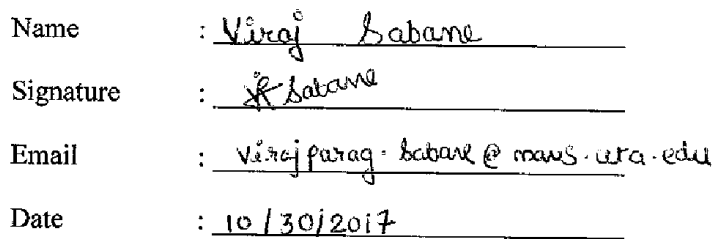 Name : Viraj Sabane
Signature : Sabane
Email : virajparag.sabane@mavs.uta.edu
Date : 10/30/2017